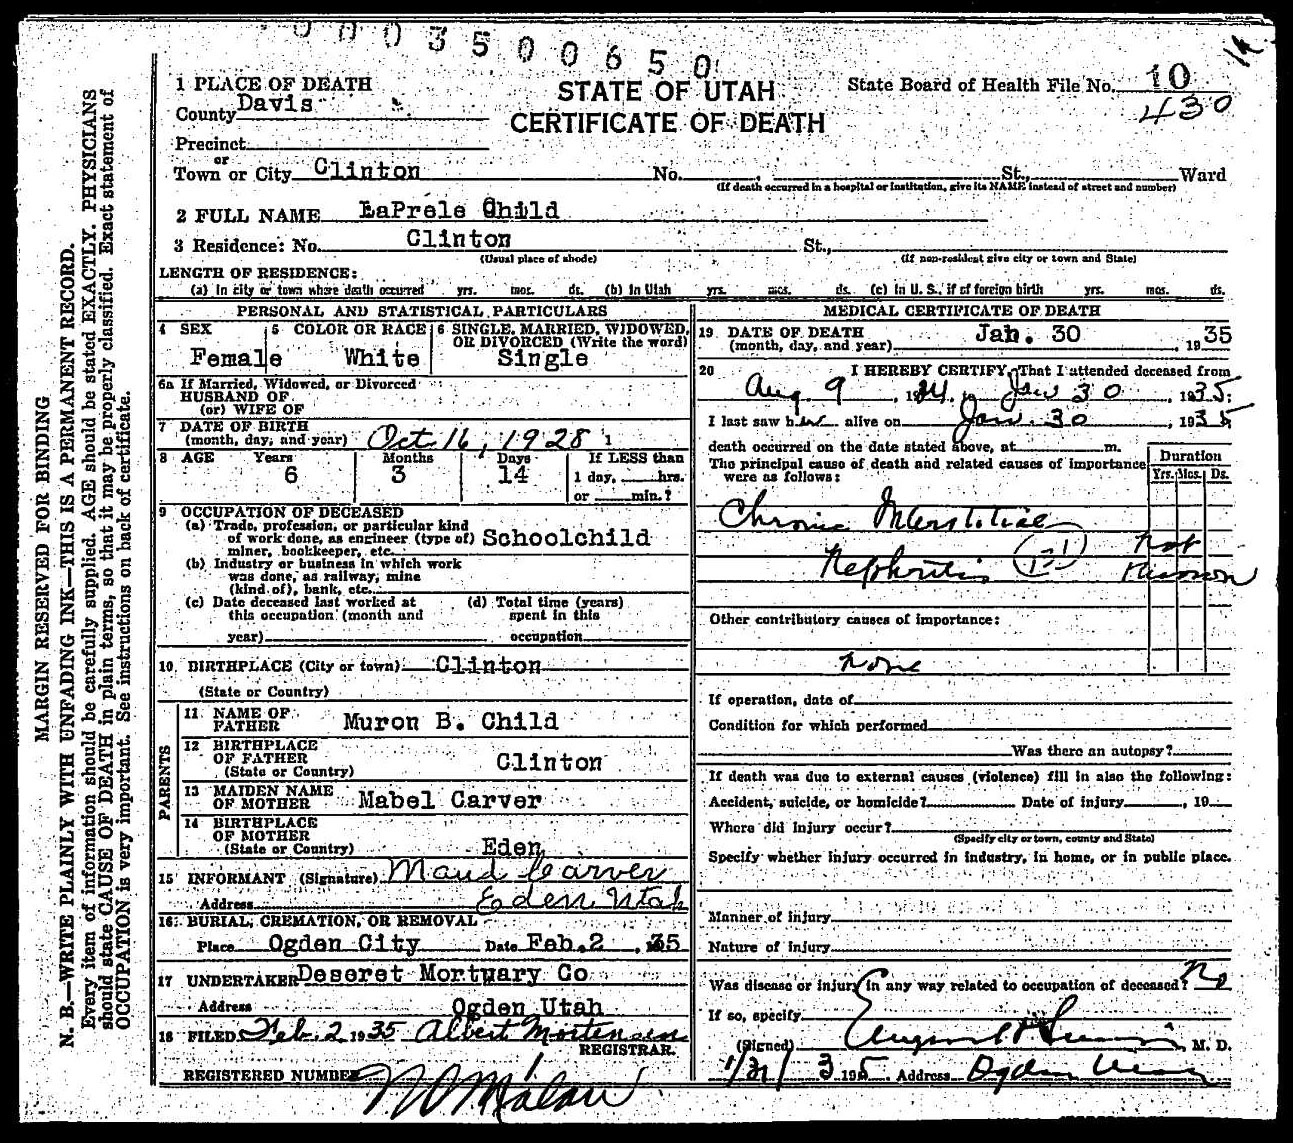 0003500650
1 PLACE OF DEATH
STATE OF UTAH
CERTIFICATE OF DEATH
State Board of Health File No. 10
430
County Davis
Precinct
or
Town or City Clinton No. St., Ward
(If death occurred in a hospital or institution, give its NAME instead of street and number)
2 FULL NAME LaPrele Child
3 Residence: No. Clinton St.,
(Usual place of abode) (If non-resident give city or town and State)
LENGTH OF RESIDENCE:
(a) In city or town where death occurred yrs. mos. ds. (b) In Utah yrs. mos. ds. (c) In U. S., if of foreign birth yrs. mos. ds.
PERSONAL AND STATISTICAL PARTICULARS
4 SEX Female
5 COLOR OR RACE White
6 SINGLE, MARRIED, WIDOWED, OR DIVORCED (Write the word) Single
6a If Married, Widowed, or Divorced
HUSBAND OF
(or) WIFE OF
7 DATE OF BIRTH
(month, day, and year) Oct. 16, 1928 1
8 AGE Years Months Days If LESS than
6 3 14 1 day, hrs.
or min.?
9 OCCUPATION OF DECEASED
(a) Trade, profession, or particular kind
of work done, as engineer (type of) Schoolchild
miner, bookkeeper, etc.
(b) Industry or business in which work
was done, as railway, mine
(kind of), bank, etc.
(c) Date deceased last worked at (d) Total time (years)
this occupation (month and spent in this
year) occupation
10. BIRTHPLACE (City or town) Clinton
(State or Country)
PARENTS
11 NAME OF
FATHER Muron B. Child
12 BIRTHPLACE
OF FATHER Clinton
(State or Country)
13 MAIDEN NAME
OF MOTHER Mabel Carver
14 BIRTHPLACE
OF MOTHER
(State or Country) Eden
15 INFORMANT (Signature) Maud Carver
Address Eden Utah
16 BURIAL, CREMATION, OR REMOVAL
Place Ogden City Date Feb.2 , 35
17 UNDERTAKER Deseret Mortuary Co
Address Ogden Utah
18 FILED Feb. 2 1935 Albert Mortensen
REGISTRAR.
REGISTERED NUMBER 1
MEDICAL CERTIFICATE OF DEATH
19 DATE OF DEATH
(month, day, and year) Jan. 30 , 1935
20 I HEREBY CERTIFY, That I attended deceased from
Aug 9 , 1934, to Jan 30 , 1935;
I last saw her alive on Jan. 30 , 1935
death occurred on the date stated above, at m.
The principal cause of death and related causes of importance
were as follows:
Duration
Yrs. Mos. Ds.
Chronic Interstitial
Nephritis (131) not
known
Other contributory causes of importance:
none
If operation, date of
Condition for which performed
Was there an autopsy?
If death was due to external causes (violence) fill in also the following:
Accident, suicide, or homicide? Date of injury , 19
Where did injury occur?
(Specify city or town, county and State)
Specify whether injury occurred in industry, in home, or in public place.
Manner of injury
Nature of injury
Was disease or injury in any way related to occupation of deceased? No
If so, specify
(Signed) , M. D.
1/31/ 3 1935 Address Ogden Utah
MARGIN RESERVED FOR BINDING
N. B.—WRITE PLAINLY WITH UNFADING INK—THIS IS A PERMANENT RECORD.
Every item of information should be carefully supplied. AGE should be stated EXACTLY. PHYSICIANS
should state CAUSE OF DEATH in plain terms, so that it may be properly classified. Exact statement of
OCCUPATION is very important. See instructions on back of certificate.